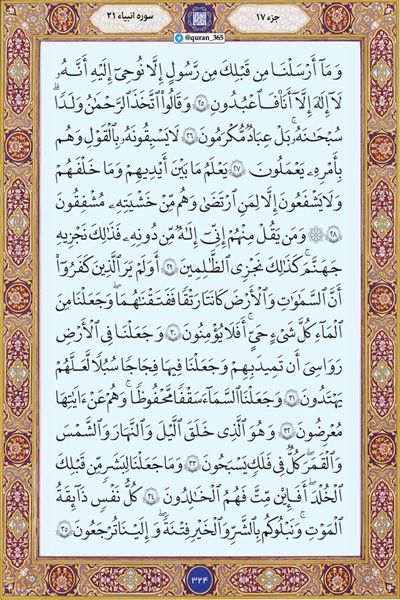 جزء ۱۷
@quran_365
سوره انبیاء ۲۱
وَمَآ أَرۡسَلۡنَا مِن قَبۡلِكَ مِن رَّسُولٍ إِلَّا نُوحِيٓ إِلَيۡهِ أَنَّهُۥ
لَآ إِلَٰهَ إِلَّآ أَنَا۠ فَٱعۡبُدُونِ ۲۵ وَقَالُواْ ٱتَّخَذَ ٱلرَّحۡمَٰنُ وَلَدٗاۗ
سُبۡحَٰنَهُۥۚ بَلۡ عِبَادٞ مُّكۡرَمُونَ ۲۶ لَا يَسۡبِقُونَهُۥ بِٱلۡقَوۡلِ وَهُم
بِأَمۡرِهِۦ يَعۡمَلُونَ ۲۷ يَعۡلَمُ مَا بَيۡنَ أَيۡدِيهِمۡ وَمَا خَلۡفَهُمۡ
وَلَا يَشۡفَعُونَ إِلَّا لِمَنِ ٱرۡتَضَىٰ وَهُم مِّنۡ خَشۡيَتِهِۦ مُشۡفِقُونَ
۲۸ ۞ وَمَن يَقُلۡ مِنۡهُمۡ إِنِّيٓ إِلَٰهٞ مِّن دُونِهِۦ فَذَٰلِكَ نَجۡزِيهِ
جَهَنَّمَۚ كَذَٰلِكَ نَجۡزِي ٱلظَّٰلِمِينَ ۲۹ أَوَلَمۡ يَرَ ٱلَّذِينَ كَفَرُوٓاْ
أَنَّ ٱلسَّمَٰوَٰتِ وَٱلۡأَرۡضَ كَانَتَا رَتۡقٗا فَفَتَقۡنَٰهُمَاۖ وَجَعَلۡنَا مِنَ
ٱلۡمَآءِ كُلَّ شَيۡءٍ حَيٍّۚ أَفَلَا يُؤۡمِنُونَ ۳۰ وَجَعَلۡنَا فِي ٱلۡأَرۡضِ
رَوَٰسِيَ أَن تَمِيدَ بِهِمۡ وَجَعَلۡنَا فِيهَا فِجَاجٗا سُبُلٗا لَّعَلَّهُمۡ
يَهۡتَدُونَ ۳۱ وَجَعَلۡنَا ٱلسَّمَآءَ سَقۡفٗا مَّحۡفُوظٗاۖ وَهُمۡ عَنۡ ءَايَٰتِهَا
مُعۡرِضُونَ ۳۲ وَهُوَ ٱلَّذِي خَلَقَ ٱلَّيۡلَ وَٱلنَّهَارَ وَٱلشَّمۡسَ
وَٱلۡقَمَرَۖ كُلّٞ فِي فَلَكٖ يَسۡبَحُونَ ۳۳ وَمَا جَعَلۡنَا لِبَشَرٖ مِّن قَبۡلِكَ
ٱلۡخُلۡدَۖ أَفَإِيْن مِّتَّ فَهُمُ ٱلۡخَٰلِدُونَ ۳۴ كُلُّ نَفۡسٖ ذَآئِقَةُ
ٱلۡمَوۡتِۗ وَنَبۡلُوكُم بِٱلشَّرِّ وَٱلۡخَيۡرِ فِتۡنَةٗۖ وَإِلَيۡنَا تُرۡجَعُونَ ۳۵
۳۲۴